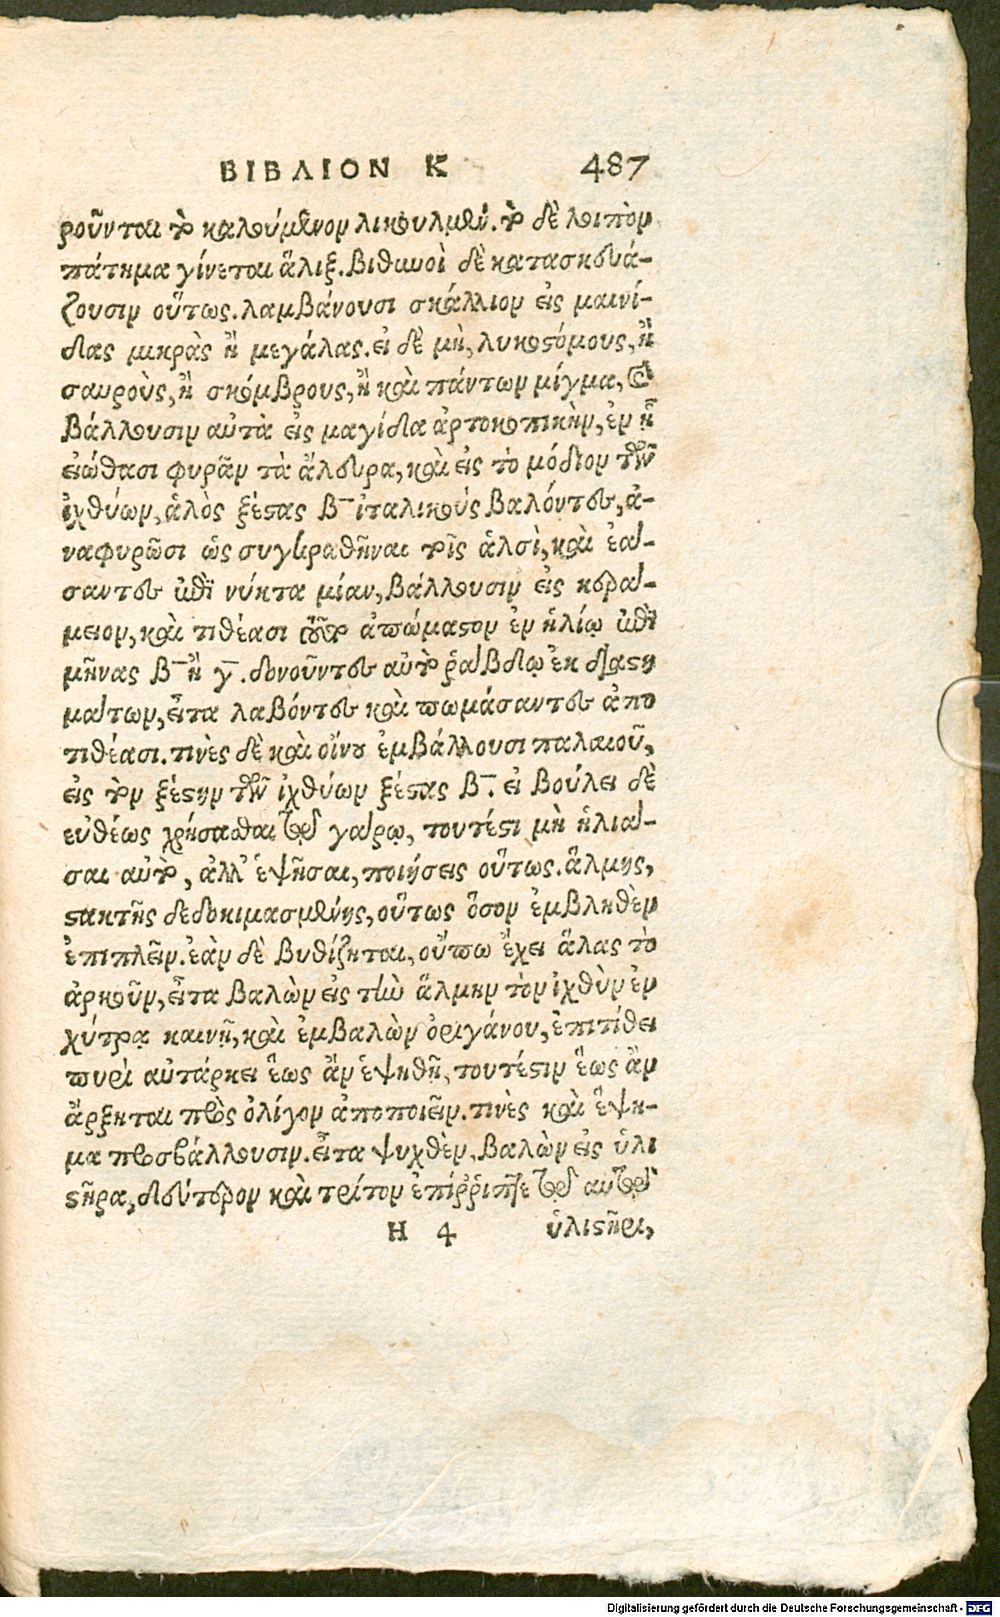 ΒΙΒΛΙΟΝ Κ 487
ροῦνται τὸ καλούμενον λικουλμεν. τὸ δὲ λοιπὸν
πάτημα γίνεται ἄλιξ. Βιθυνοὶ δὲ κατασκευά-
ζουσιν οὕτως. λαμβάνουσι σκάλλιον εἰς μαινί-
δας μικρὰς ἢ μεγάλας. εἰ δὲ μὴ, λυκοστόμους, ἢ
σαυροὺς, ἢ σκόμβρους, ἢ καὶ πάντων μίγμα, καὶ
βάλλουσιν αὐτὰ εἰς μαγίδια ἀρτοκοπικὴν, ἐν ᾗ
εἰώθασι φυρᾶν τὰ ἄλευρα, καὶ εἰς τὸ μόδιον τῶν
ἰχθύων, ἁλὸς ξέστας β‾ ἰταλικοὺς βαλόντες, ἀ-
ναφυρῶσι ὡς συγκραθῆναι τοῖς ἁλσὶ, καὶ ἐά-
σαντες ἐπὶ νύκτα μίαν, βάλλουσιν εἰς κερά-
μειον, καὶ τιθέασι τοῦτο ἀπώμαστον ἐν ἡλίῳ ἐπὶ
μῆνας β‾ ἢ γ‾. δονοῦντες αὐτὸ ῥάβδῳ ἐκ διαστη
μάτων, εἶτα λαβόντες καὶ πωμάσαντες ἀπο
τιθέασι. τινὲς δὲ καὶ οἴνου ἐμβάλλουσι παλαιοῦ,
εἰς τὸν ξέστην τῶν ἰχθύων ξέστας β‾. εἰ βούλει δὲ
εὐθέως χρήσασθαι τῷ γάρῳ, τουτέστι μὴ ἡλιά-
σαι αὐτὸ, ἀλλ' ἑψῆσαι, ποιήσεις οὕτως. ἅλμης,
στακτῆς δεδοκιμασμένης, οὕτως ὅσον ἐμβληθὲν
ἐπιπλεῖν. ἐὰν δὲ βυθίζηται, οὔπω ἔχει ἅλας τὸ
ἀρκοῦν, εἶτα βαλὼν εἰς τὴν ἅλμην τὸν ἰχθὺν ἐν
χύτρᾳ καινῇ, καὶ ἐμβαλὼν ὀριγάνου, ἐπιτίθει
πυρὶ αὐτάρκει ἕως ἂν ἑψηθῇ, τουτέστιν ἕως ἂν
ἄρξηται πρὸς ὀλίγον ἀποποιεῖν. τινὲς καὶ ἕψη-
μα προσβάλλουσιν. εἶτα ψυχθὲν, βαλὼν εἰς ὑλι
στῆρα, δεύτερον καὶ τρίτον ἐπίῤῥιπτε τῷ αὐτῷ
Η 4 ὑλιστῆρι,
Digitalisierung gefördert durch die Deutsche Forschungsgemeinschaft - DFG